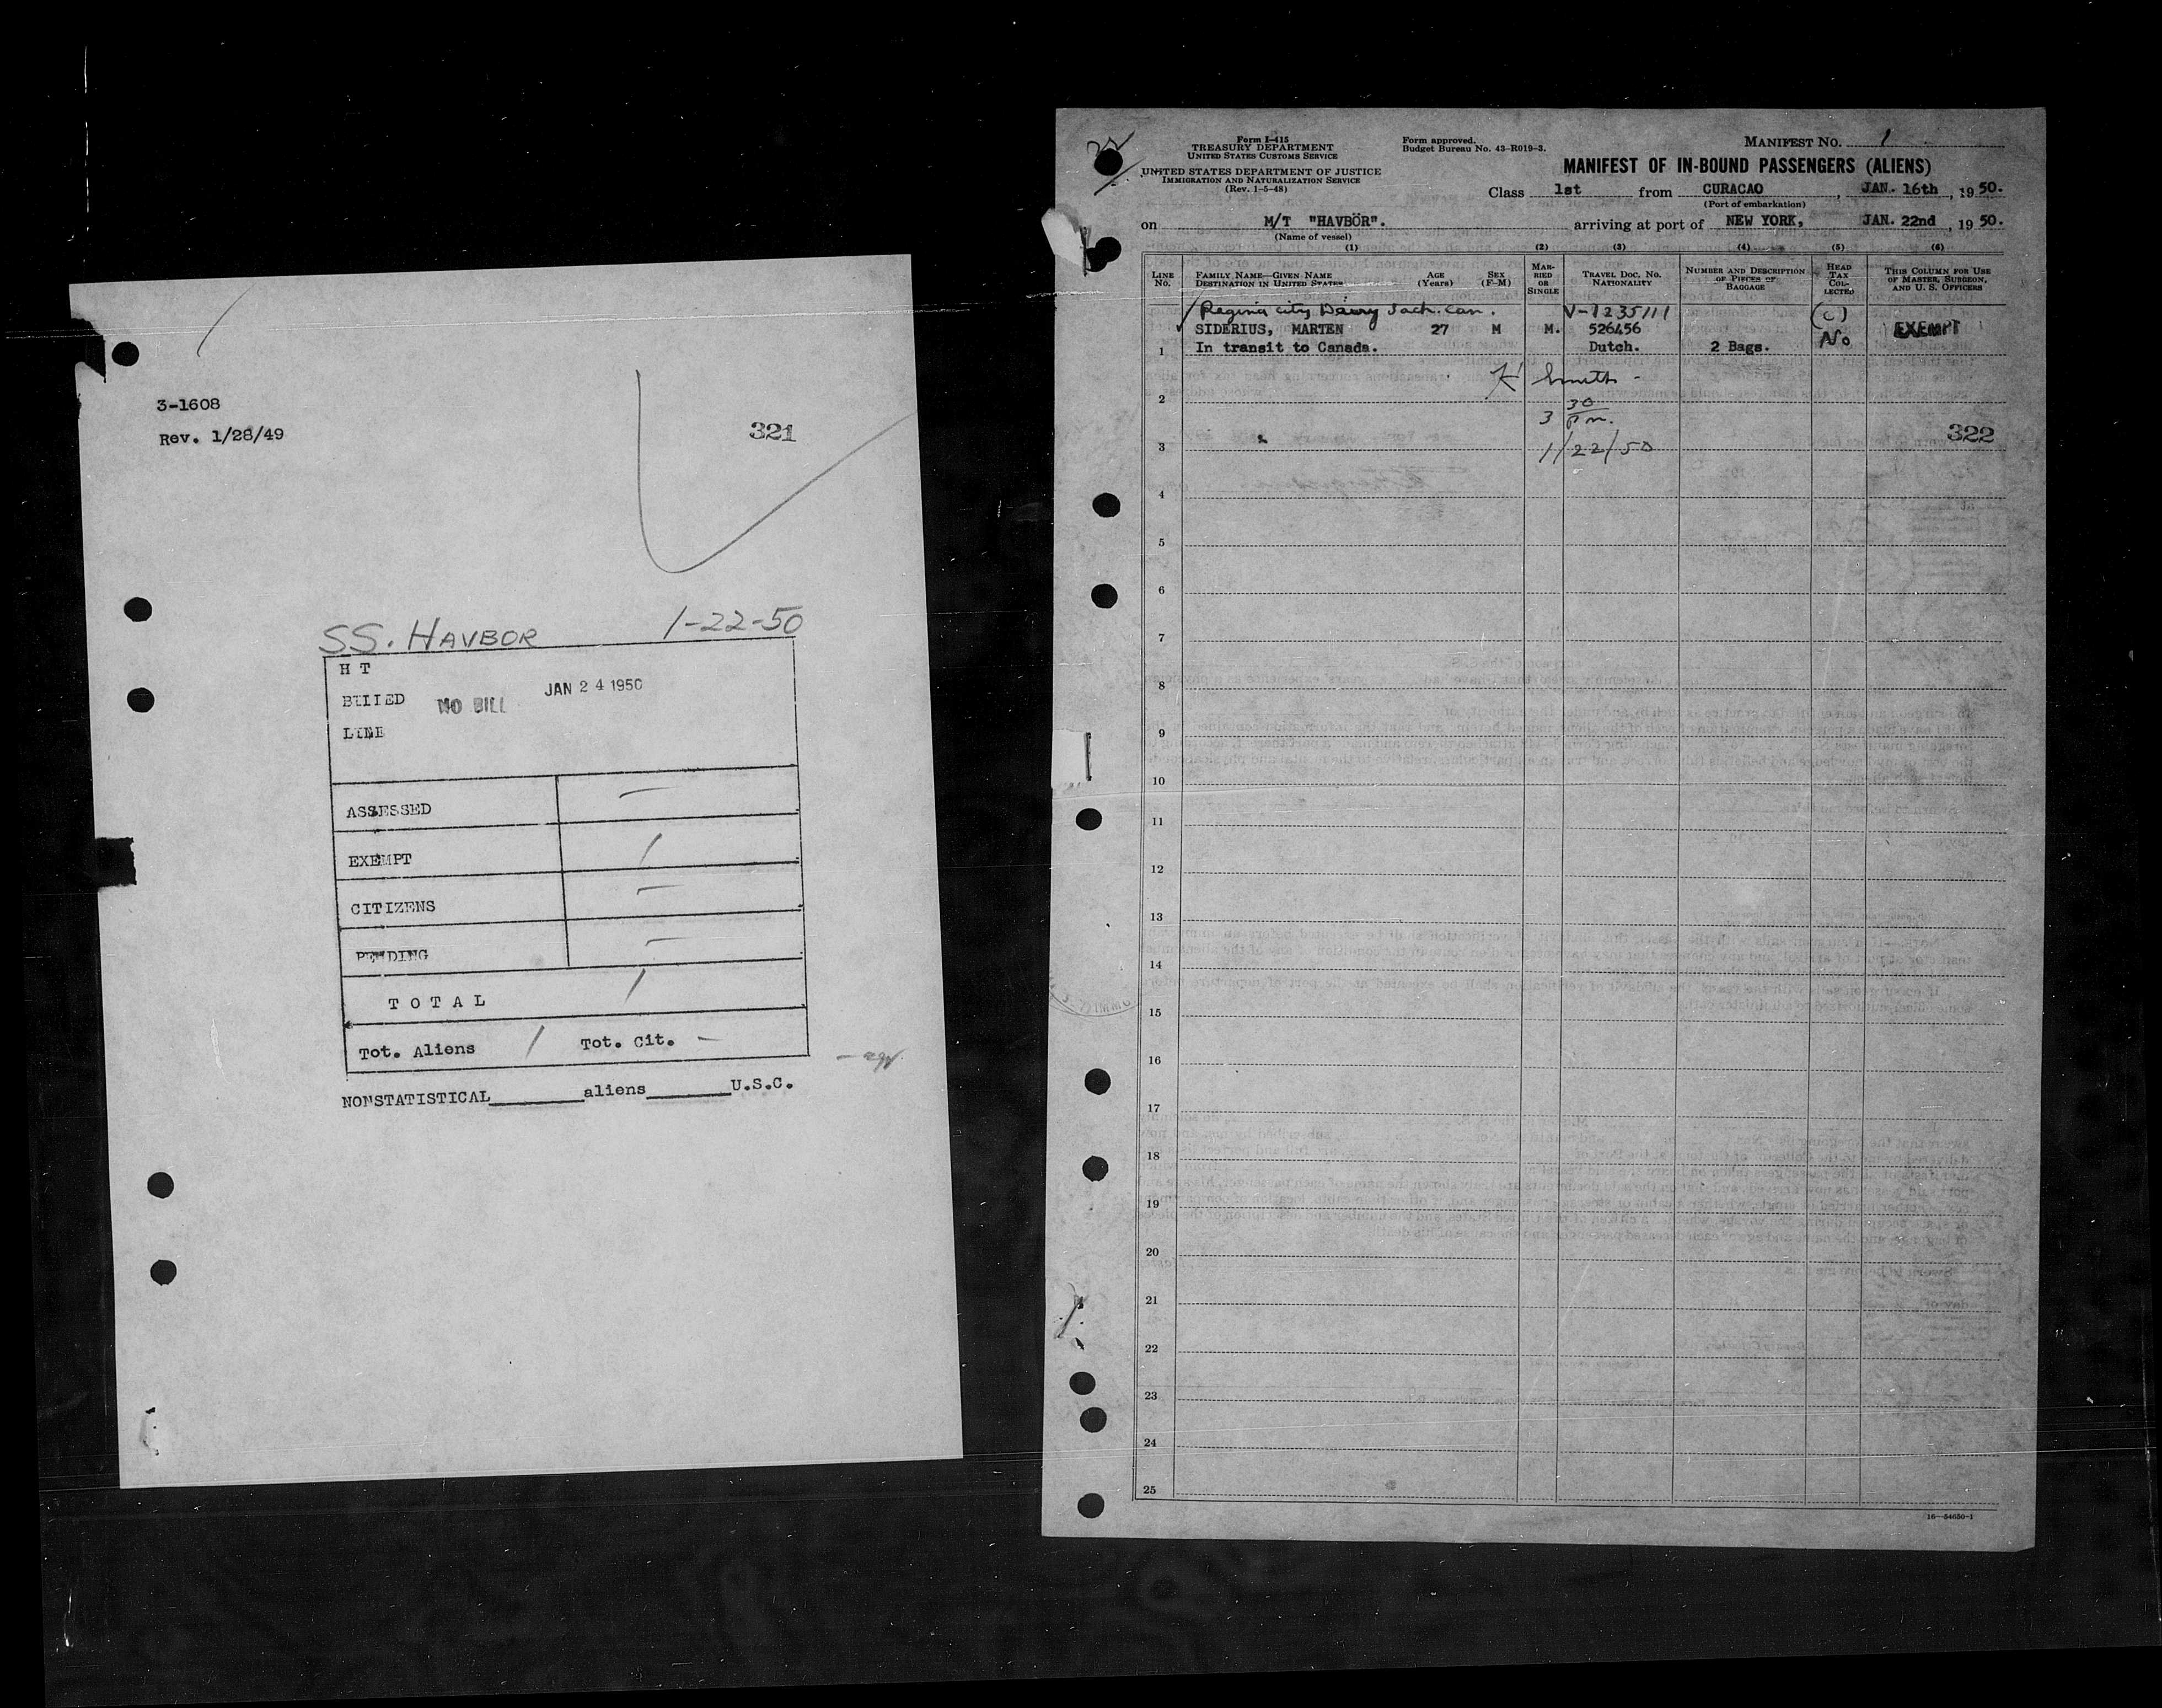 3-1608
Rev. 1/28/49
321
SS. HAVBOR 1-22-50
H T
BILLED NO BILL JAN 24 1950
LINE
ASSESSED —
EXEMPT 1
CITIZENS —
PENDING —
T O T A L 1
Tot. Aliens 1 Tot. Cit. —
NONSTATISTICAL________aliens_______U.S.C.
Form I-415
TREASURY DEPARTMENT
UNITED STATES CUSTOMS SERVICE
UNITED STATES DEPARTMENT OF JUSTICE
IMMIGRATION AND NATURALIZATION SERVICE
(Rev. 1-5-48)
Form approved.
Budget Bureau No. 43-R019-3.
MANIFEST NO. 1
MANIFEST OF IN-BOUND PASSENGERS (ALIENS)
Class 1st from CURACAO, JAN. 16th, 19 50.
(Port of embarkation)
on M/T "HAVBÖR". arriving at port of NEW YORK, JAN. 22nd, 19 50.
(Name of vessel)
(1) (2) (3) (4) (5) (6)
LINE NO. FAMILY NAME—GIVEN NAME DESTINATION IN UNITED STATES AGE (Years) SEX (F-M) MARRIED OR SINGLE TRAVEL DOC. NO. NATIONALITY NUMBER AND DESCRIPTION OF PIECES OF BAGGAGE HEAD TAX COLLECTED THIS COLUMN FOR USE OF MASTER, SURGEON, AND U. S. OFFICERS
Regina city Dairy Sach. Can. V-1235111 (C)
SIDERIUS, MARTEN 27 M M. 526456 No EXEMPT
1 In transit to Canada. Dutch. 2 Bags.
Smith -
2
3 30 pm.
322
3 1/22/50
4
5
6
7
8
9
10
11
12
13
14
15
16
17
18
19
20
21
22
23
24
25
16—54650-1